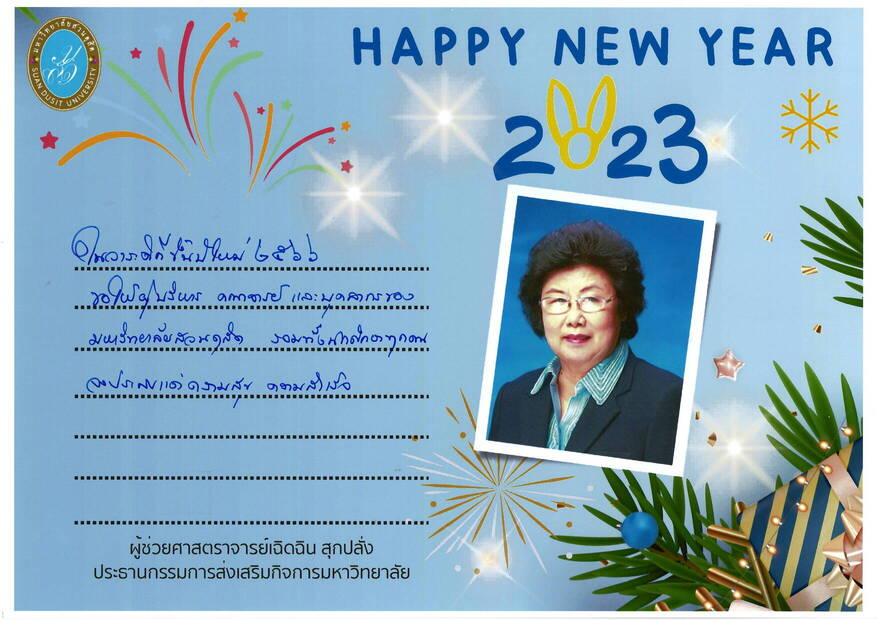 มหาวิทยาลัยสวนดุสิต
SUAN DUSIT UNIVERSITY
HAPPY NEW YEAR
2023
ในวาระดิถีขึ้นปีใหม่ ๒๕๖๖
ขอให้ผู้บริหาร คณาจารย์ และบุคลากรของ
มหาวิทยาลัยสวนดุสิต รวมทั้งนักศึกษาทุกคน
จงประสบแต่ความสุข ความสำเร็จ
ผู้ช่วยศาสตราจารย์เฉิดฉิน สุกปลั่ง
ประธานกรรมการส่งเสริมกิจการมหาวิทยาลัย